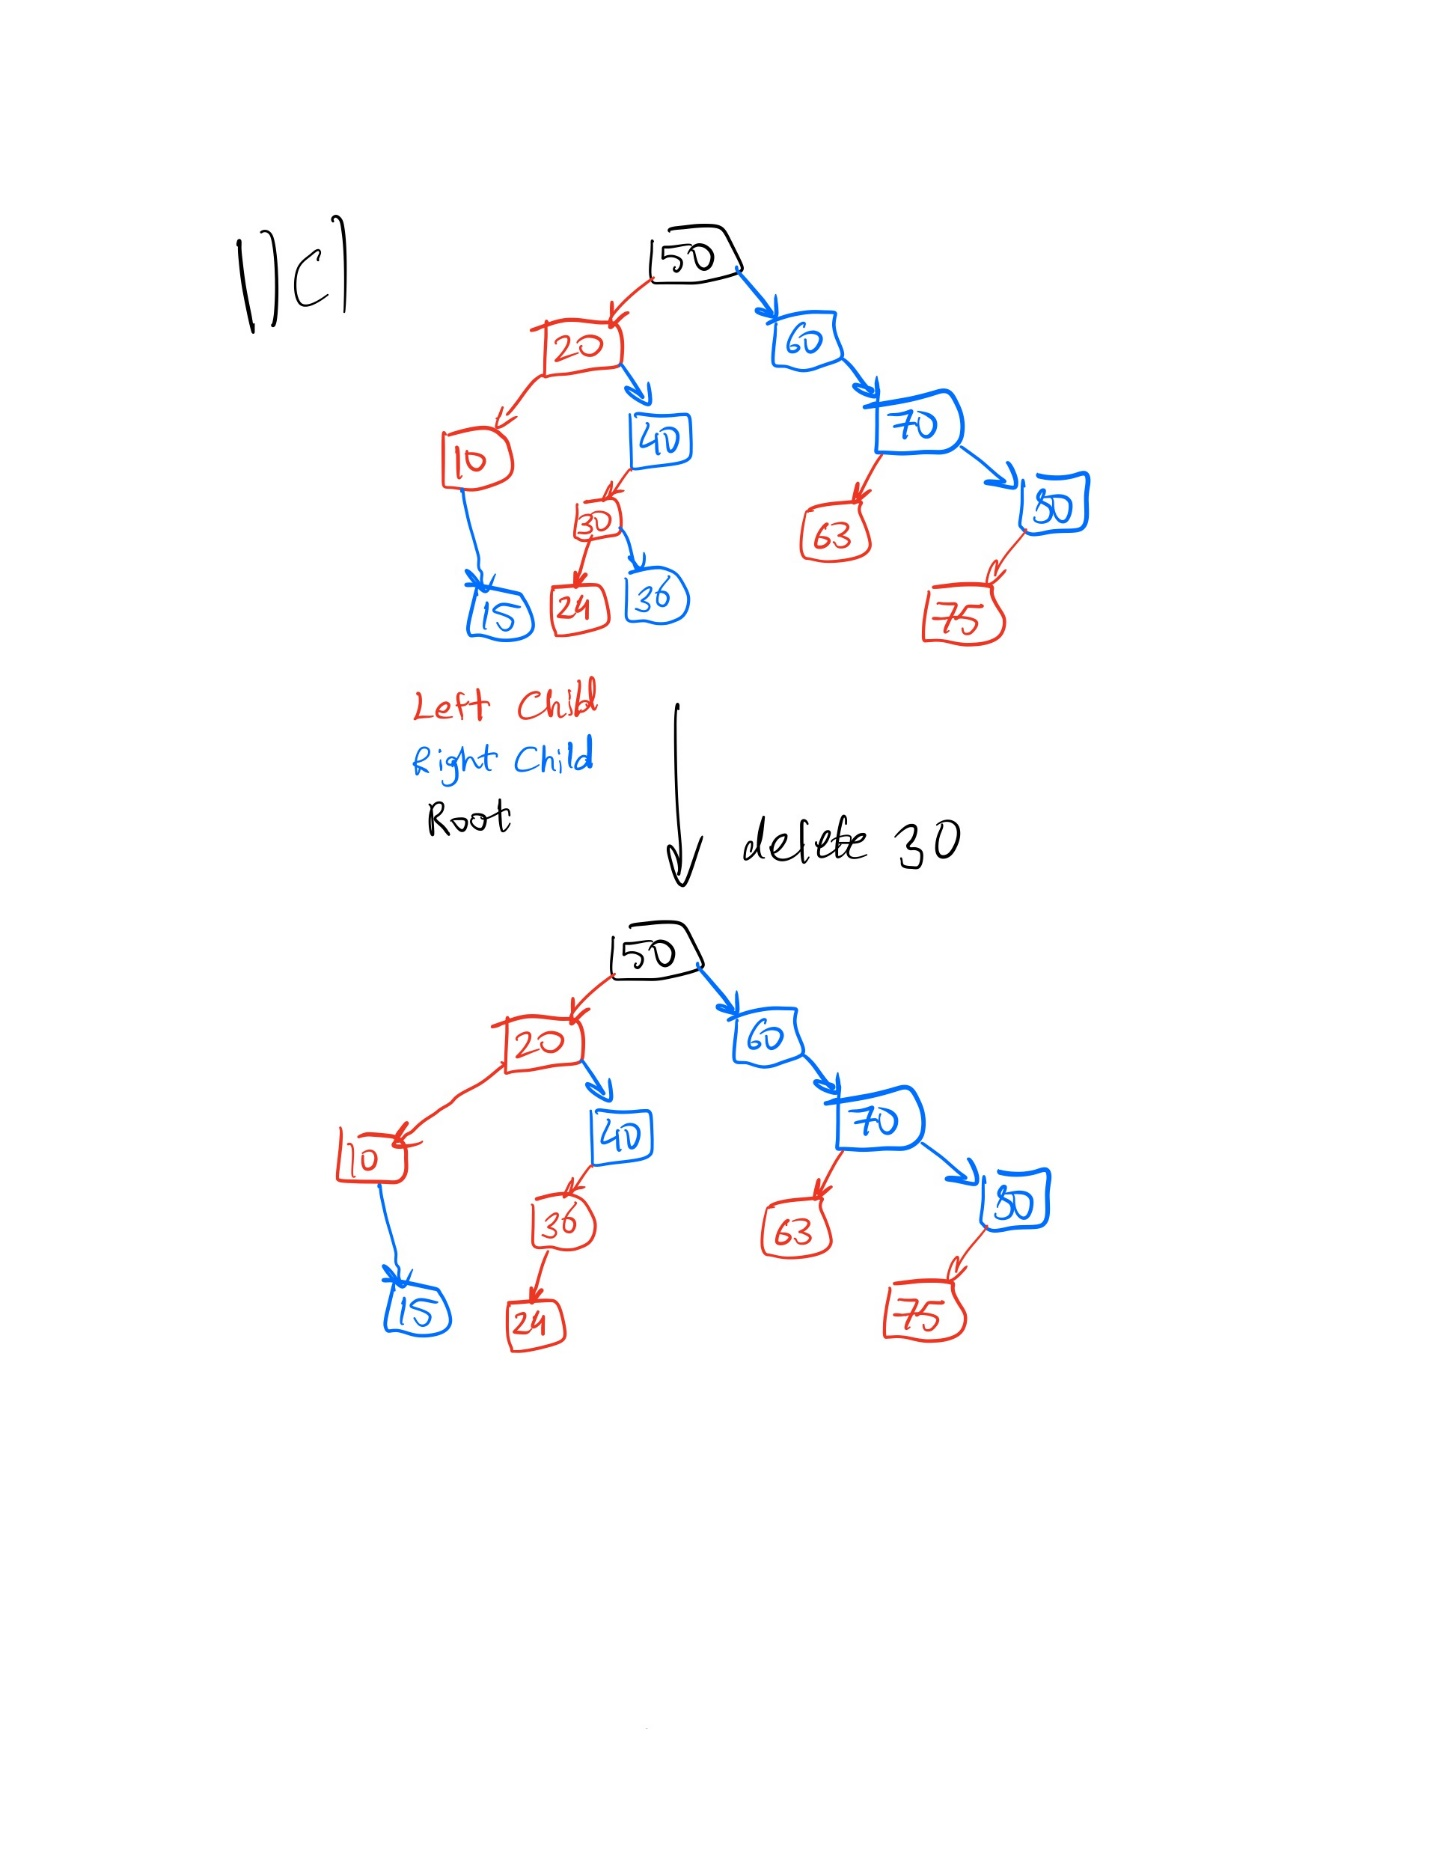 1) c)
50
20 60
10 40 70
30 63 80
15 24 36 75
Left Child
Right Child
Root
delete 30
50
20 60
10 40 70
36 63 80
15 24 75